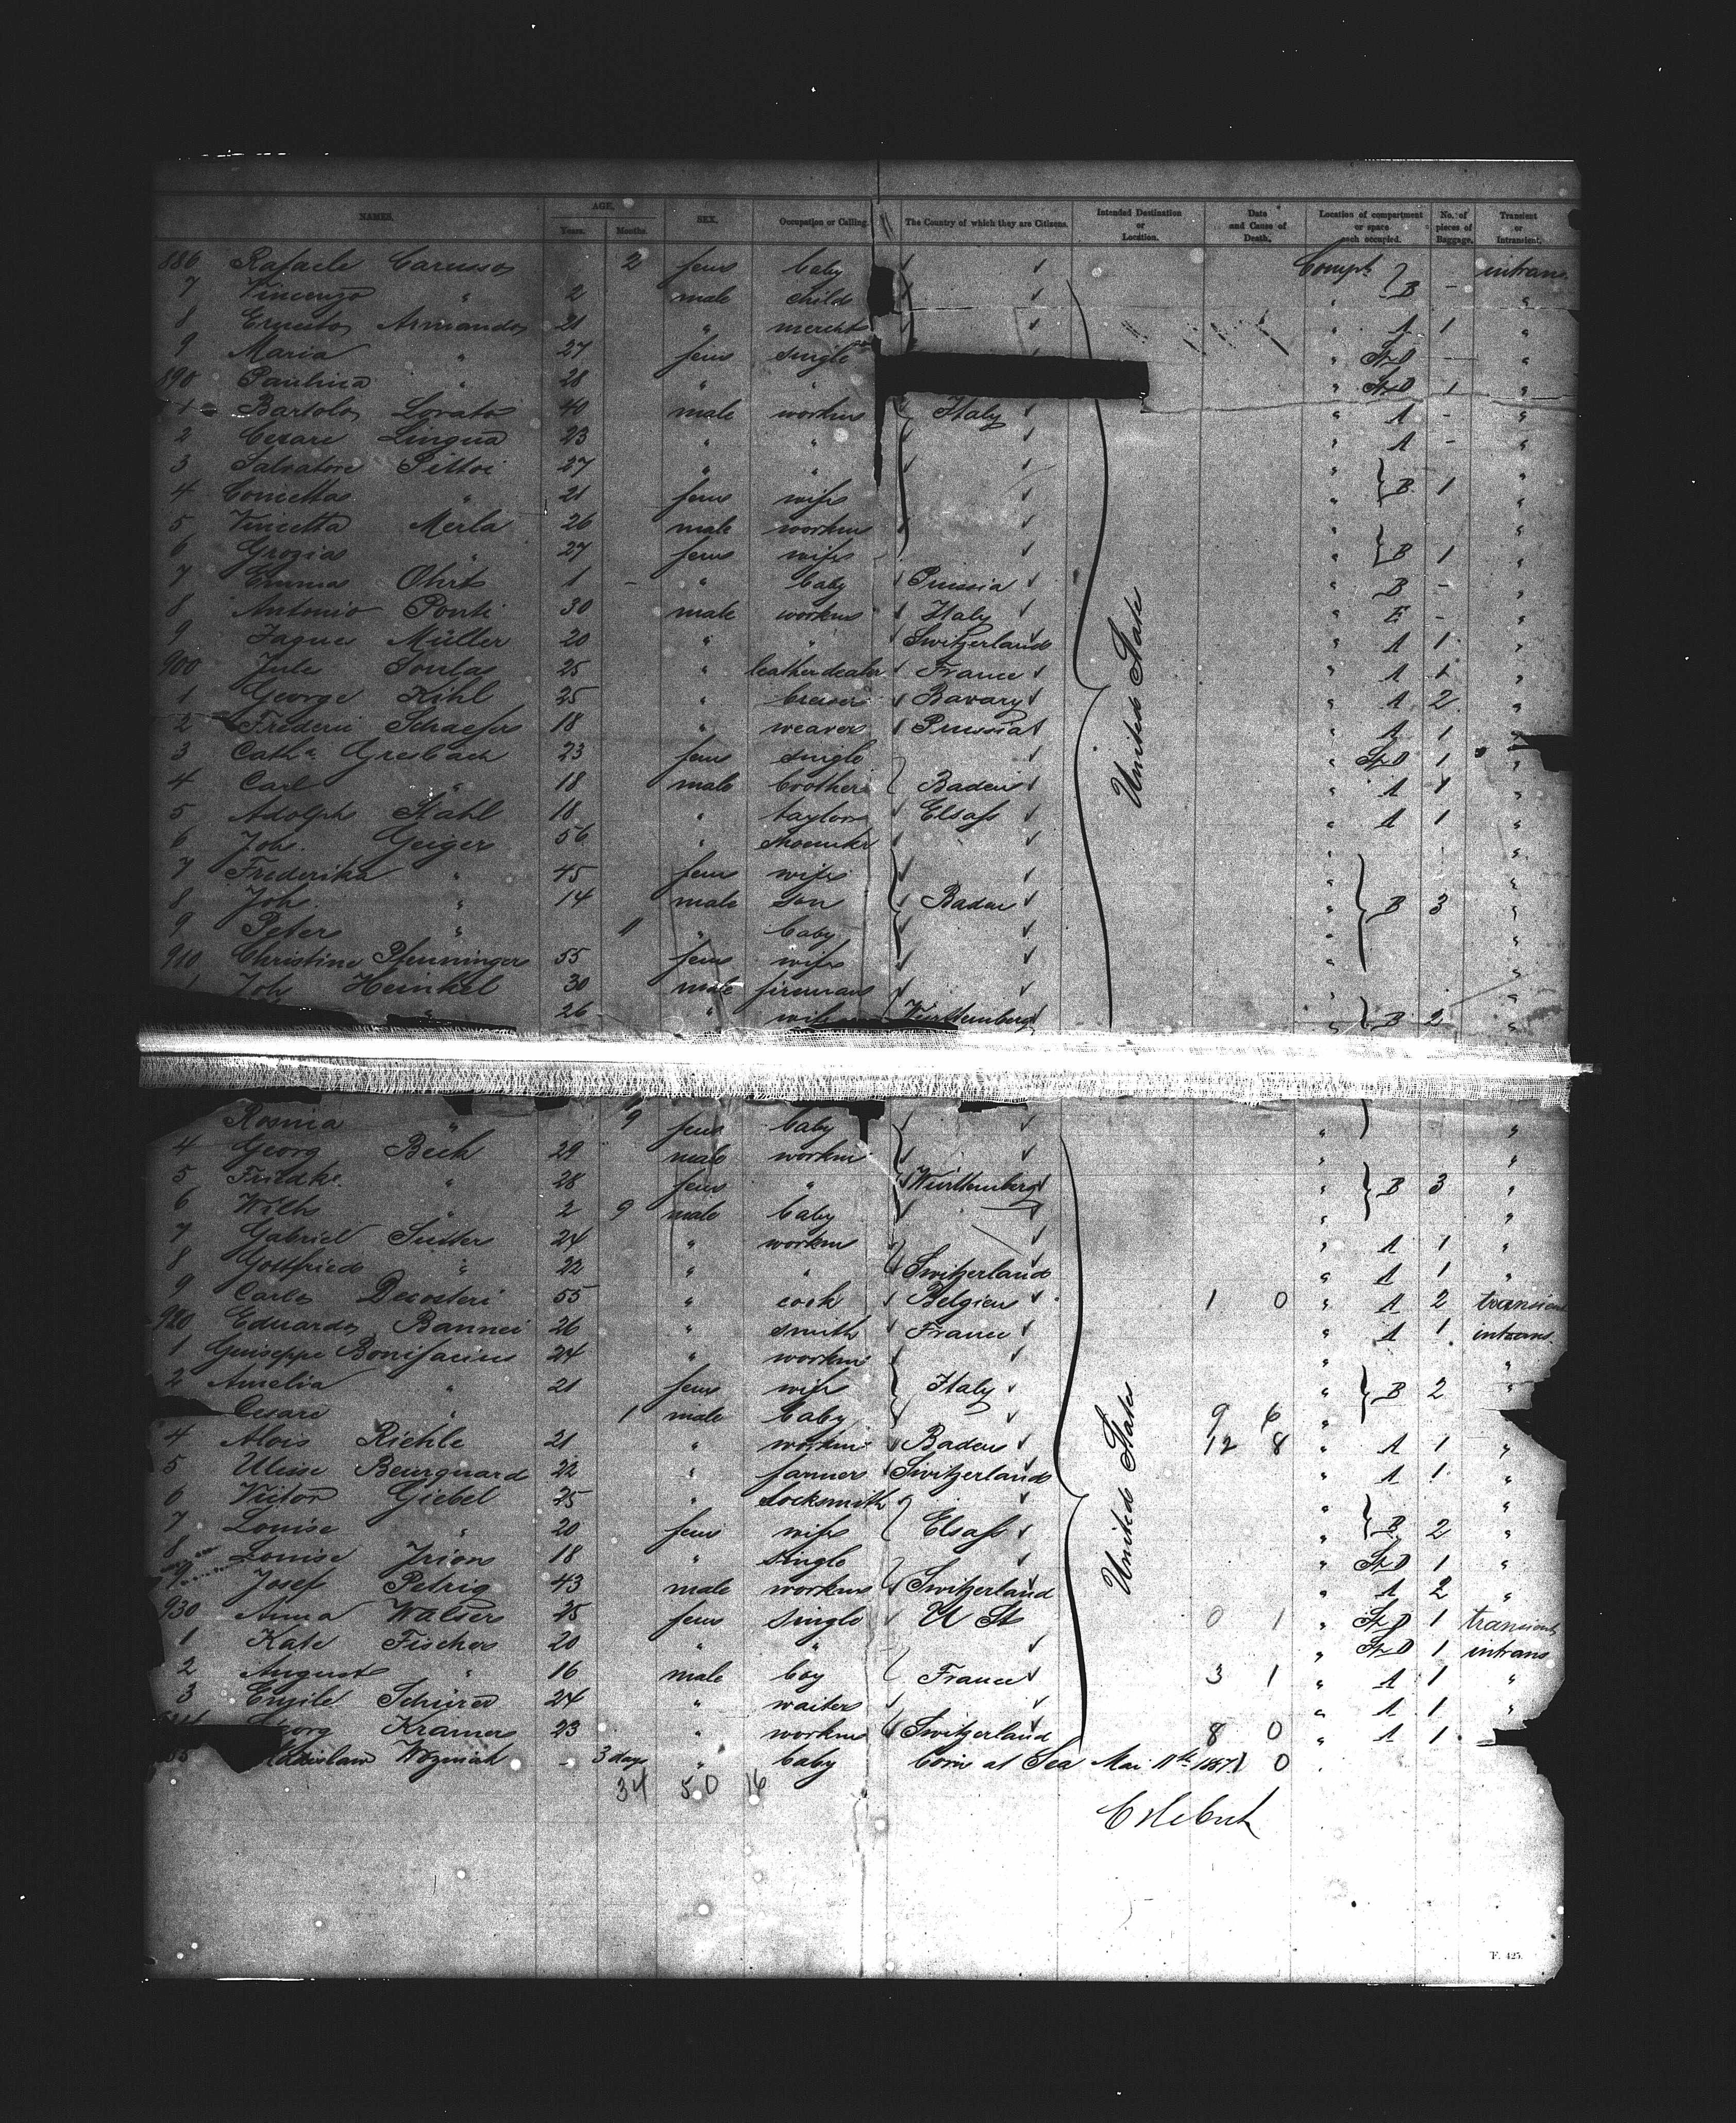 NAMES. AGE. SEX. Occupation or Calling. The Country of which they are Citizens. Intended Destination or Location. Date and Cause of Death. Location of compartment or space each occupied. No. of pieces of Baggage. Transient or Intransient.
Years. Months.
886 Rafaele Carusso 2 fem baby ✓ ✓ Compt intrans
7 Vincenzo " 2 male child ✓ ✓ " B - "
8 Ernesto Armando 21 " mercht ✓ " A 1 "
9 Maria " 27 fem single " St D — "
890 Paulina " 28 " " " St D 1 "
1 Bartolo Lovato 40 male workm Italy ✓ " A - "
2 Cezare Lingua 23 " " ✓ ✓ " A - "
3 Salvatore Pittoi 27 " " ✓ ✓ " "
4 Concetta " 21 fem wife ✓ " B 1 "
5 Vincetta Merla 26 male workm ✓ ✓ " "
6 Grozia " 27 fem wife ✓ " B 1 "
7 Emma Ohrt 1 - " baby ✓ Prussia ✓ " B - "
8 Antonio Ponti 30 male workm ✓ Italy ✓ " E - "
9 Jaques Müller 20 " " ✓ Switzerland " A 1 "
900 Jule 25 " leatherdealer ✓ France ✓ " A 1 "
1 George Kihl 25 " ✓ Bavary ✓ " A 2 "
2 Frederic Schaefer 18 " weaver ✓ Prussia ✓ " A 1 "
3 Catha Gresbach 23 fem single ✓ " St D 1 "
4 Carl " 18 male brother Baden ✓ " A 1 "
5 Adolph Stahl 18 " taylor ✓ Elsass ✓ " A 1 "
6 Joh. Geiger 56 " shoemkr ✓ ✓ " "
7 Frederika " 45 fem wife ✓ ✓ " "
8 Joh. " 14 male son Baden ✓ " B 3 "
9 Peter " 11 " baby ✓ ✓ " "
910 Christine Pfenninger 55 fem wife ✓ ✓ " "
1 Joh Heinkel 30 male fireman ✓ ✓ "
" 26 " wife Württemberg " B 2 "
United State
Rosina " 9 fem baby ✓ ✓ " "
4 Georg Beck 29 male workm ✓ ✓ " "
5 Friedke. " 28 fem " Württemberg ✓ " B 3 "
6 Wilh " 2 9 male baby ✓ " "
7 Gabriel Sutter 24 " workm ✓ " A 1 "
8 Gottfried " 22 " " Switzerland " A 1 "
9 Carlo Decosteri 55 " cook ✓ Belgien ✓ 1 0 " A 2 transient
920 Eduardo Bannei 26 " smith ✓ France ✓ " A 1 intrans
1 Guiseppe Bonifacius 24 " workm ✓ ✓ " "
2 Amelia " 21 fem wife Italy ✓ " B 2 "
Cesare " 1 male baby ✓ ✓ 9 6 "
4 Alois Riehle 21 " workm ✓ Baden ✓ 12 8 " A 1 "
5 Ulisse Beurquard 22 " farmer ✓ Switzerland " A 1 "
6 Victor Giebel 25 " locksmith ✓ " "
7 Louise " 20 fem wife Elsass ✓ " B 2 "
8 Louise Irion 18 " single ✓ " St D 1 "
9 Josef Petrig 43 male workm Switzerland " A 2 "
930 Anna Walser 25 fem single ✓ U St 0 1 " St D 1 transient
1 Kate Fischer 20 " " ✓ " St D 1 intrans
2 August " 16 male boy France ✓ 3 1 " A 1 "
3 Emile Schürer 24 " waiter ✓ ✓ " A 1 "
Georg Kramer 23 " workm Switzerland 8 0 " A 1
35 Wozniak - 3 days " baby born at Sea Mai 11th 1887 0
United States
34 50 16
F. 425.